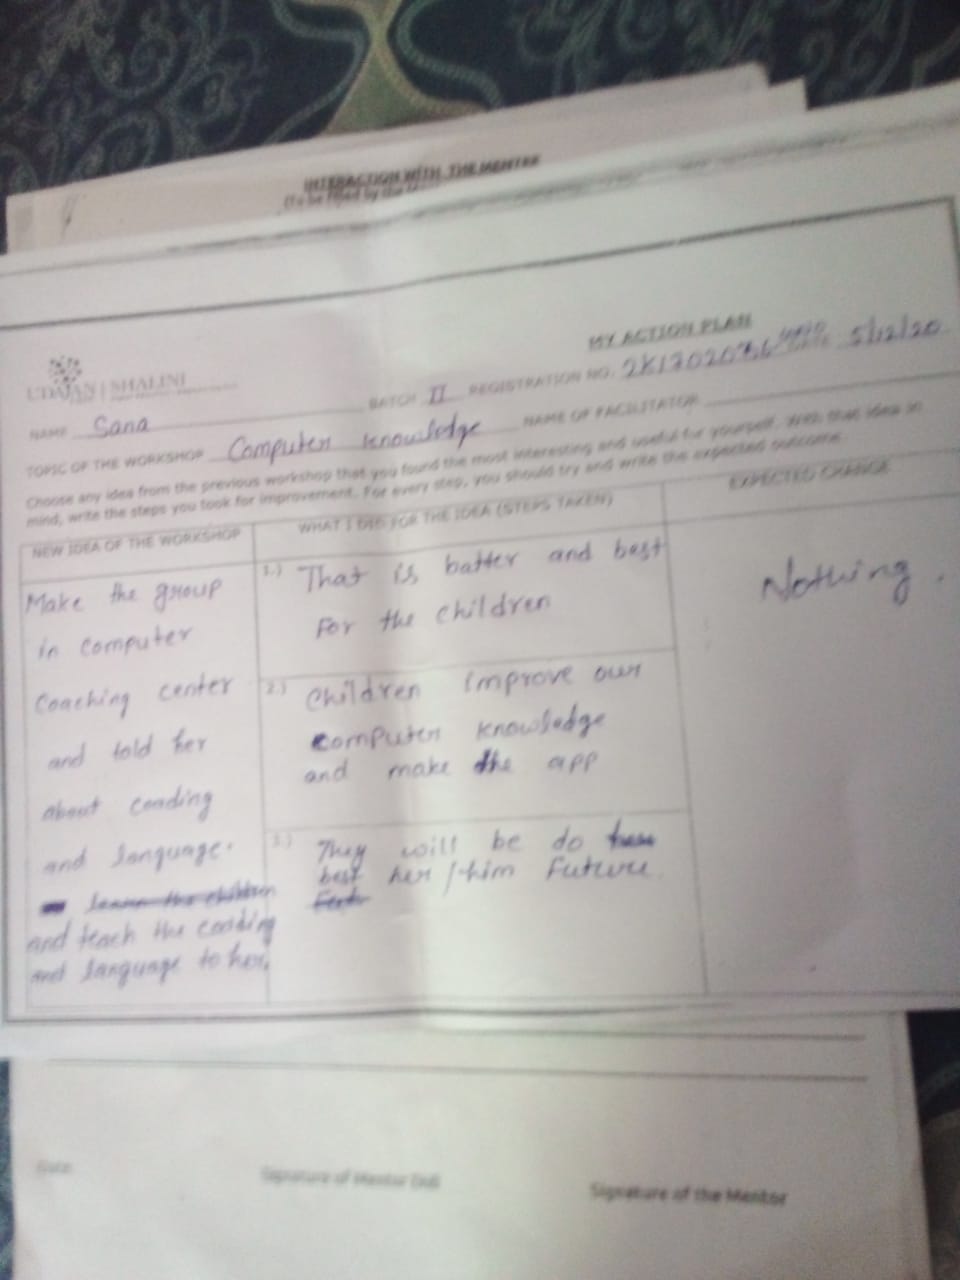 INTERACTION WITH THE MENTEE
(To be filled by the
MY ACTION PLAN
UDAYAN | SHALINI
NAME Sana BATCH II REGISTRATION NO. 5/12/20
TOPIC OF THE WORKSHOP Computer knowledge NAME OF FACILITATOR
Choose any idea from the previous workshop that you found the most interesting and useful for yourself. With that idea in
mind, write the steps you took for improvement. For every step, you should try and write the expected outcome.
NEW IDEA OF THE WORKSHOP
Make the group
in computer
Coaching center
and told her
about coading
and language.
learn the children
and teach the coading
and language to her.
WHAT I DID FOR THE IDEA (STEPS TAKEN)
1.) That is batter and best
For the children
2.) Children improve our
computer knowledge
and make the app
3.) They will be do
best her/him Future.
EXPECTED CHANGE
Nothing.
Date
Signature of Mentor Didi
Signature of the Mentor